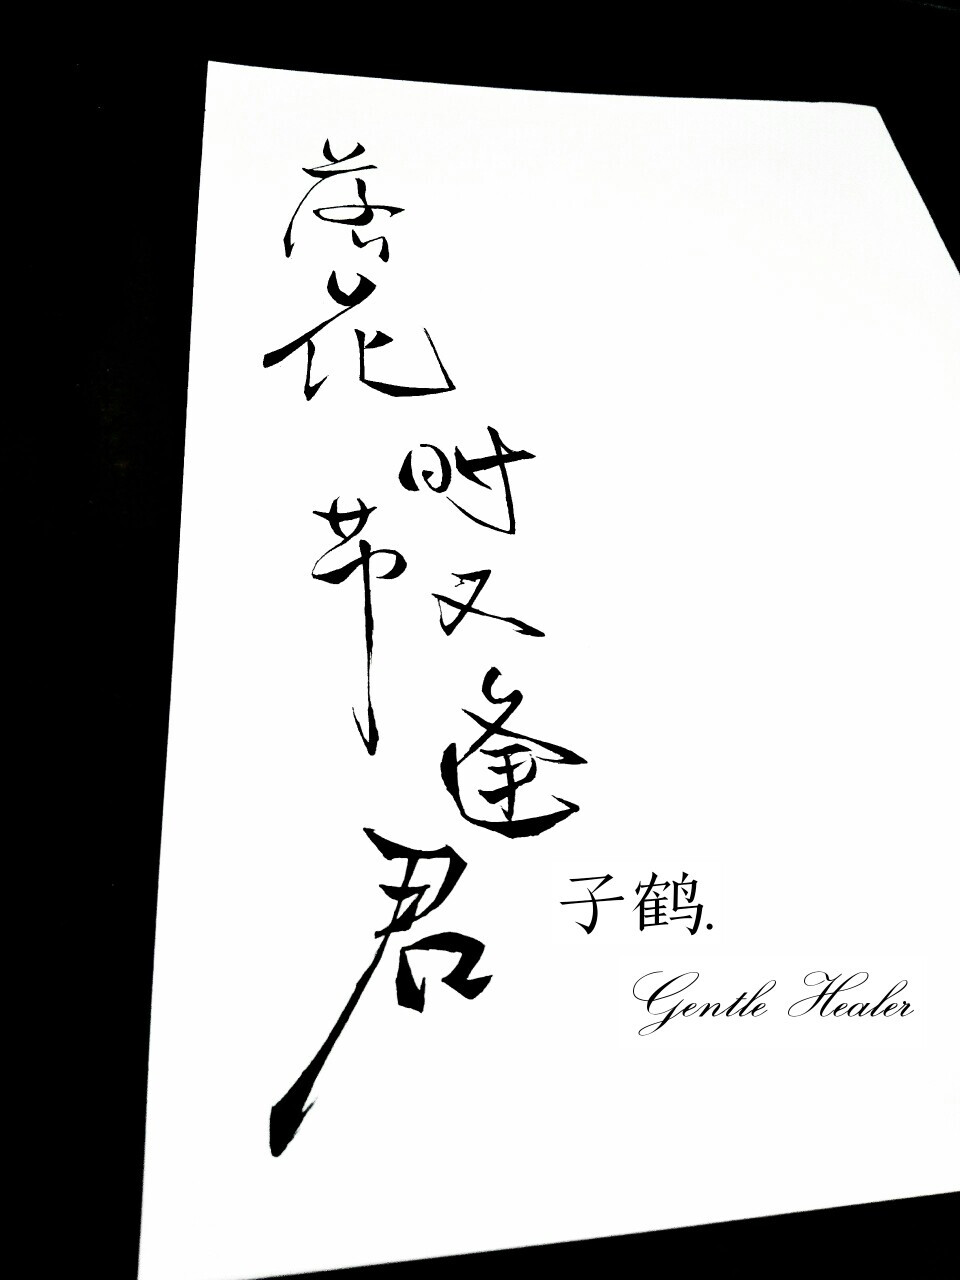 落花时节又逢君
子鹤.
Gentle Healer